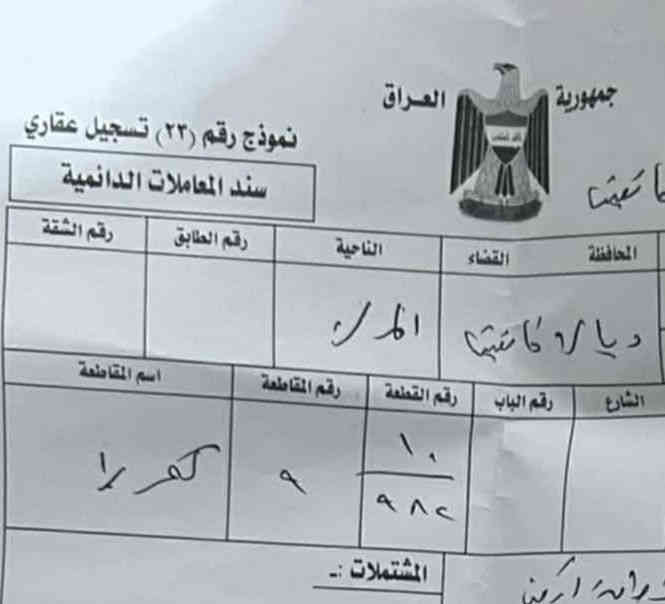 جمهورية العراق
نموذج رقم (٢٣) تسجيل عقاري
سند المعاملات الدائمية
المحافظة القضاء الناحية رقم الطابق رقم الشقة
ديالى
الشارع رقم الباب رقم القطعة رقم المقاطعة اسم المقاطعة
١٠
٩٨٢ ٩
المشتملات :ـ